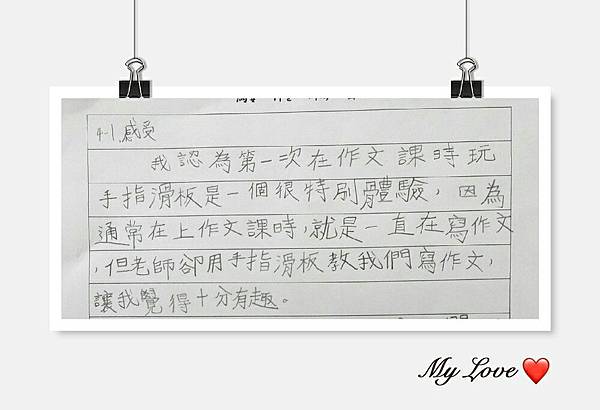 4-1.感受
我認為第一次在作文課時玩
手指滑板是一個很特別體驗，因為
通常在上作文課時，就是一直在寫作文
，但老師卻用手指滑板教我們寫作文，
讓我覺得十分有趣。
My Love